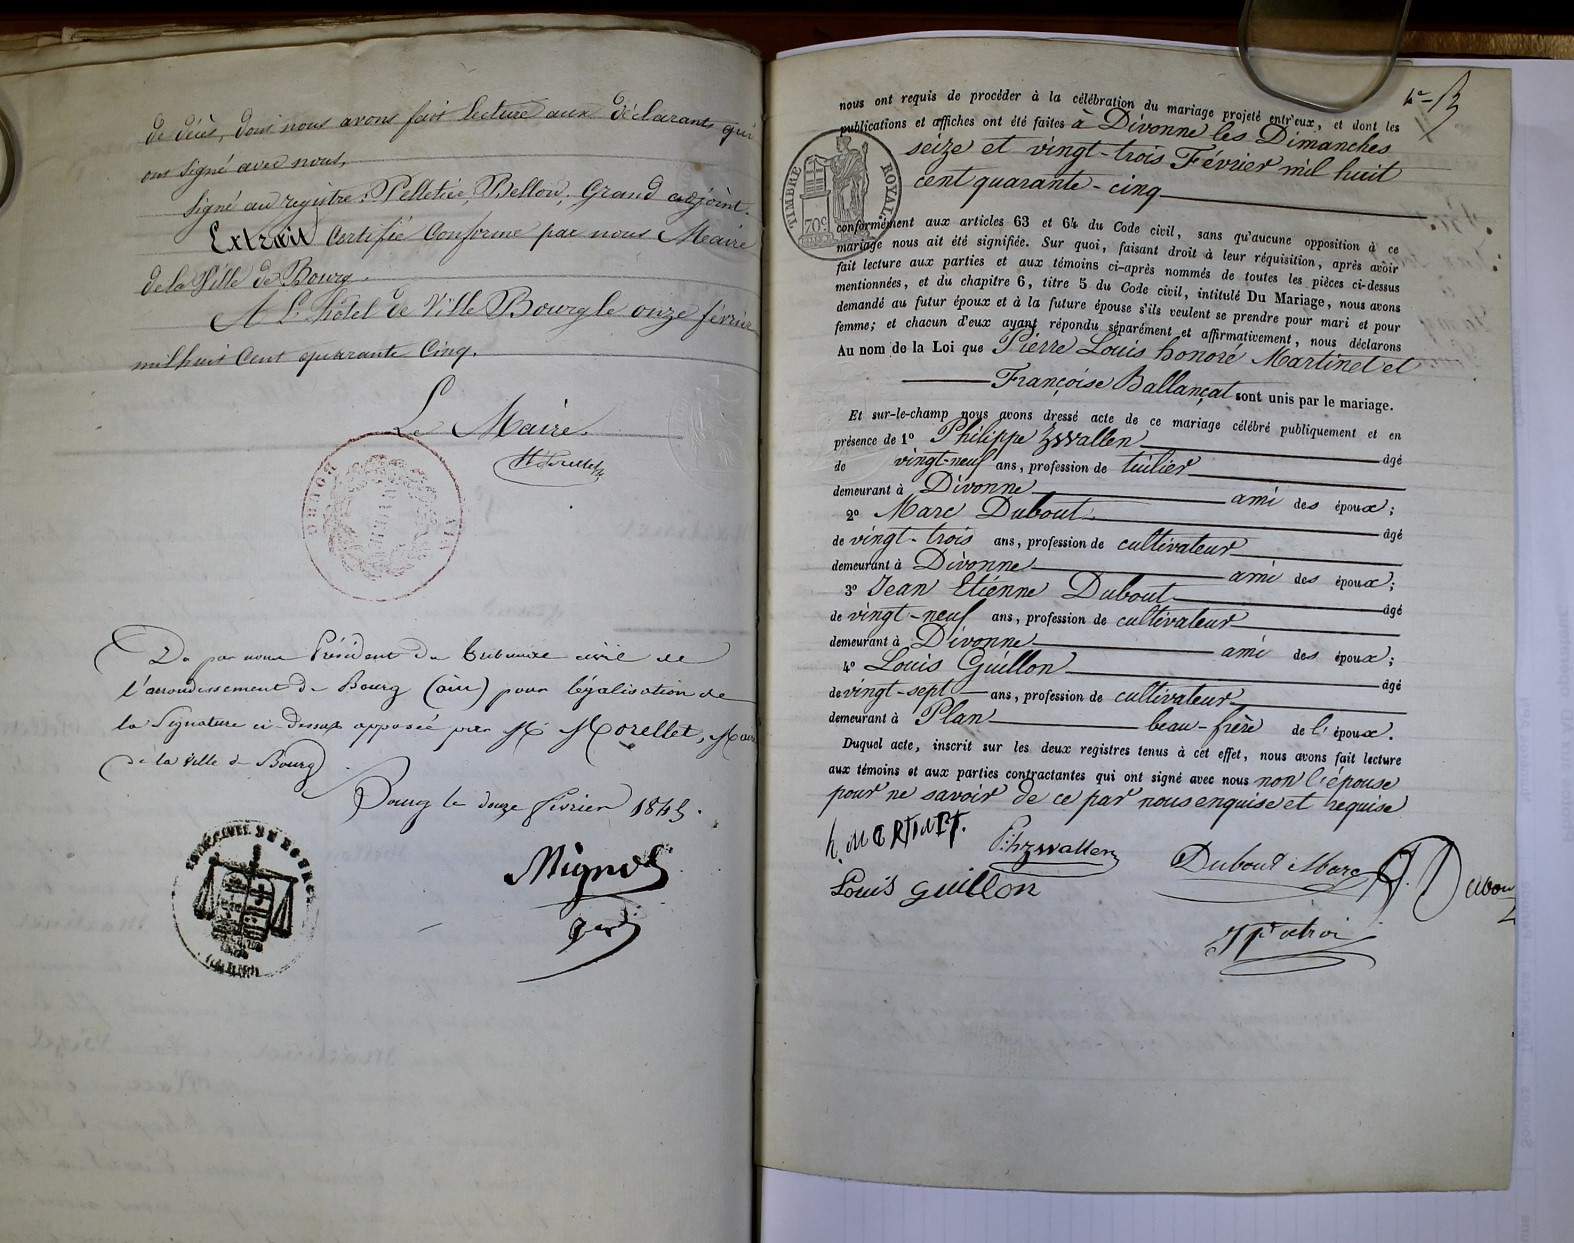 de décès, dont nous avons fait lecture aux déclarants qui
ont signé avec nous,
Signé au registre : Pelletier, Bellon, Grand adjoint.
Extrait Certifié Conforme par nous Maire
de la Ville de Bourg.
A L'hôtel de Ville Bourg le onze février
mil huit Cent quarante Cinq.
Le Maire.
Morellet
BOURG
AIN
Vu par nous Président du tribunal civil de
l'arrondissement de Bourg (ain) pour légalisation de
la Signature ci-dessus apposée par Mr Morellet, Maire
de la ville de Bourg
Bourg le douze février 1845.
Mignot
nous ont requis de procéder à la célébration du mariage projeté entr'eux, et dont les
publications et affiches ont été faites à Divonne les Dimanches
seize et vingt-trois Février mil huit
cent quarante-cinq
TIMBRE ROYAL
70c
conformément aux articles 63 et 64 du Code civil, sans qu'aucune opposition à ce
mariage nous ait été signifiée. Sur quoi, faisant droit à leur réquisition, après avoir
fait lecture aux parties et aux témoins ci-après nommés de toutes les pièces ci-dessus
mentionnées, et du chapitre 6, titre 5 du Code civil, intitulé Du Mariage, nous avons
demandé au futur époux et à la future épouse s'ils veulent se prendre pour mari et pour
femme; et chacun d'eux ayant répondu séparément et affirmativement, nous déclarons
Au nom de la Loi que Pierre Louis honoré Martinet et
Françoise Ballançat sont unis par le mariage.
Et sur-le-champ nous avons dressé acte de ce mariage célébré publiquement et en
présence de 1o Philippe Zwallen âgé
de vingt-neuf ans, profession de tuilier
demeurant à Divonne ami des époux;
2o Marc Dubout âgé
de vingt-trois ans, profession de cultivateur
demeurant à Divonne ami des époux;
3o Jean Etienne Dubout âgé
de vingt-neuf ans, profession de cultivateur
demeurant à Divonne ami des époux;
4o Louis Guillon âgé
de vingt-sept ans, profession de cultivateur
demeurant à Plan beau-frère de l'époux.
Duquel acte, inscrit sur les deux registres tenus à cet effet, nous avons fait lecture
aux témoins et aux parties contractantes qui ont signé avec nous non l'épouse
pour ne savoir de ce par nous enquise et requise
h. MARTINET. Ph zwallen Dubout Marc J. Dubout
Louis guillon